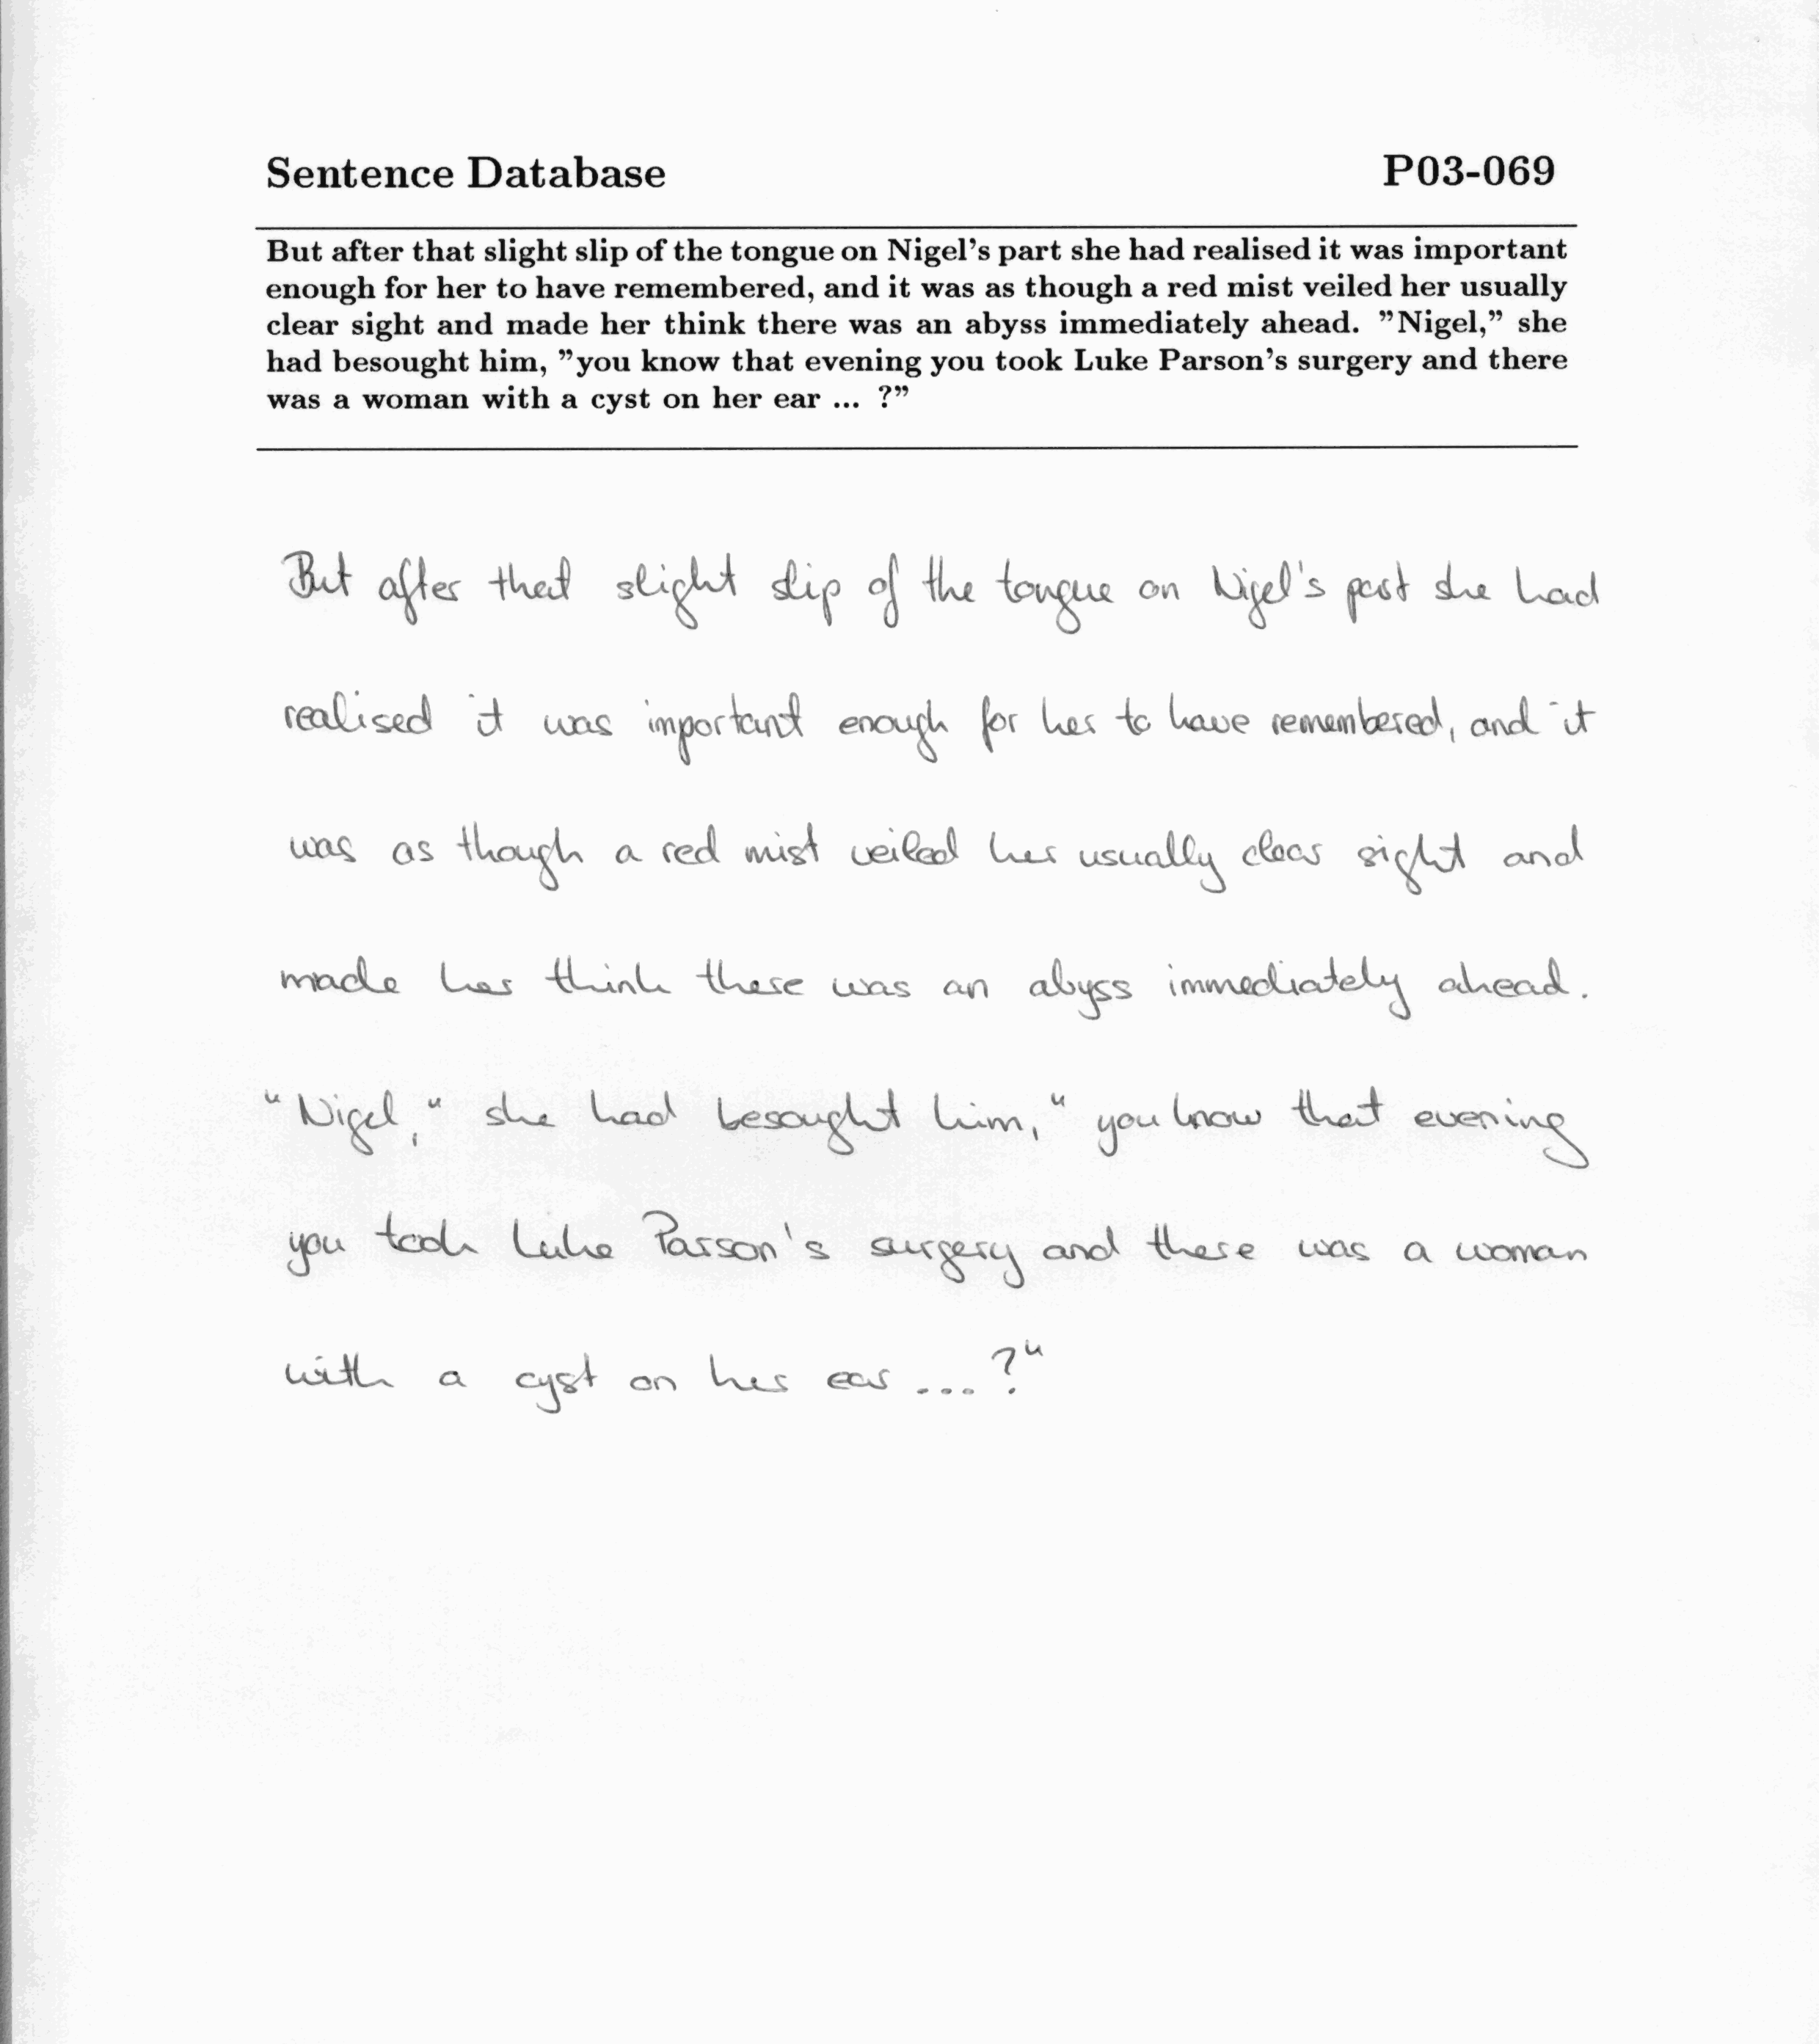 Sentence Database P03-069
But after that slight slip of the tongue on Nigel's part she had realised it was important
enough for her to have remembered, and it was as though a red mist veiled her usually
clear sight and made her think there was an abyss immediately ahead. ”Nigel,” she
had besought him, ”you know that evening you took Luke Parson's surgery and there
was a woman with a cyst on her ear ... ?”
But after that slight slip of the tongue on Nigel's part she had
realised it was important enough for her to have remembered, and it
was as though a red mist veiled her usually clear sight and
made her think there was an abyss immediately ahead.
"Nigel," she had besought him, "you know that evening
you took Luke Parson's surgery and there was a woman
with a cyst on her ear ...?"